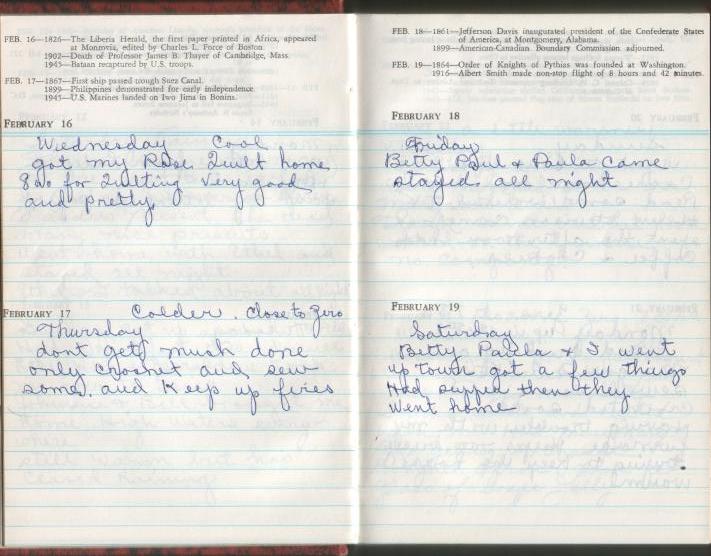 FEB. 16—1826—The Liberia Herald, the first paper printed in Africa, appeared
at Monrovia, edited by Charles L. Force of Boston.
1902—Death of Professor James B. Thayer of Cambridge, Mass.
1945—Bataan recaptured by U.S. troops.
FEB. 17—1867—First ship passed trough Suez Canal.
1899—Philippines demonstrated for early independence.
1945—U.S. Marines landed on Iwo Jima in Bonins.
FEBRUARY 16
Wednesday Cool
got my Rose Quilt home
8 00 for Quilting very good
and pretty
FEBRUARY 17 Colder. Close to Zero
Thursday
dont get mush done
only croshet and sew
some. and Keep up fires
FEB. 18—1861—Jefferson Davis inaugurated president of the Confederate States
of America, at Montgomery, Alabama.
1899—American-Canadian Boundary Commission adjourned.
FEB. 19—1864—Order of Knights of Pythias was founded at Washington.
1916—Albert Smith made non-stop flight of 8 hours and 42 minutes.
FEBRUARY 18
Friday
Betty Paul & Paula Came
stayed all night
FEBRUARY 19
Saturday
Betty Paula & I went
up town got a few things
Had supper then they
went home